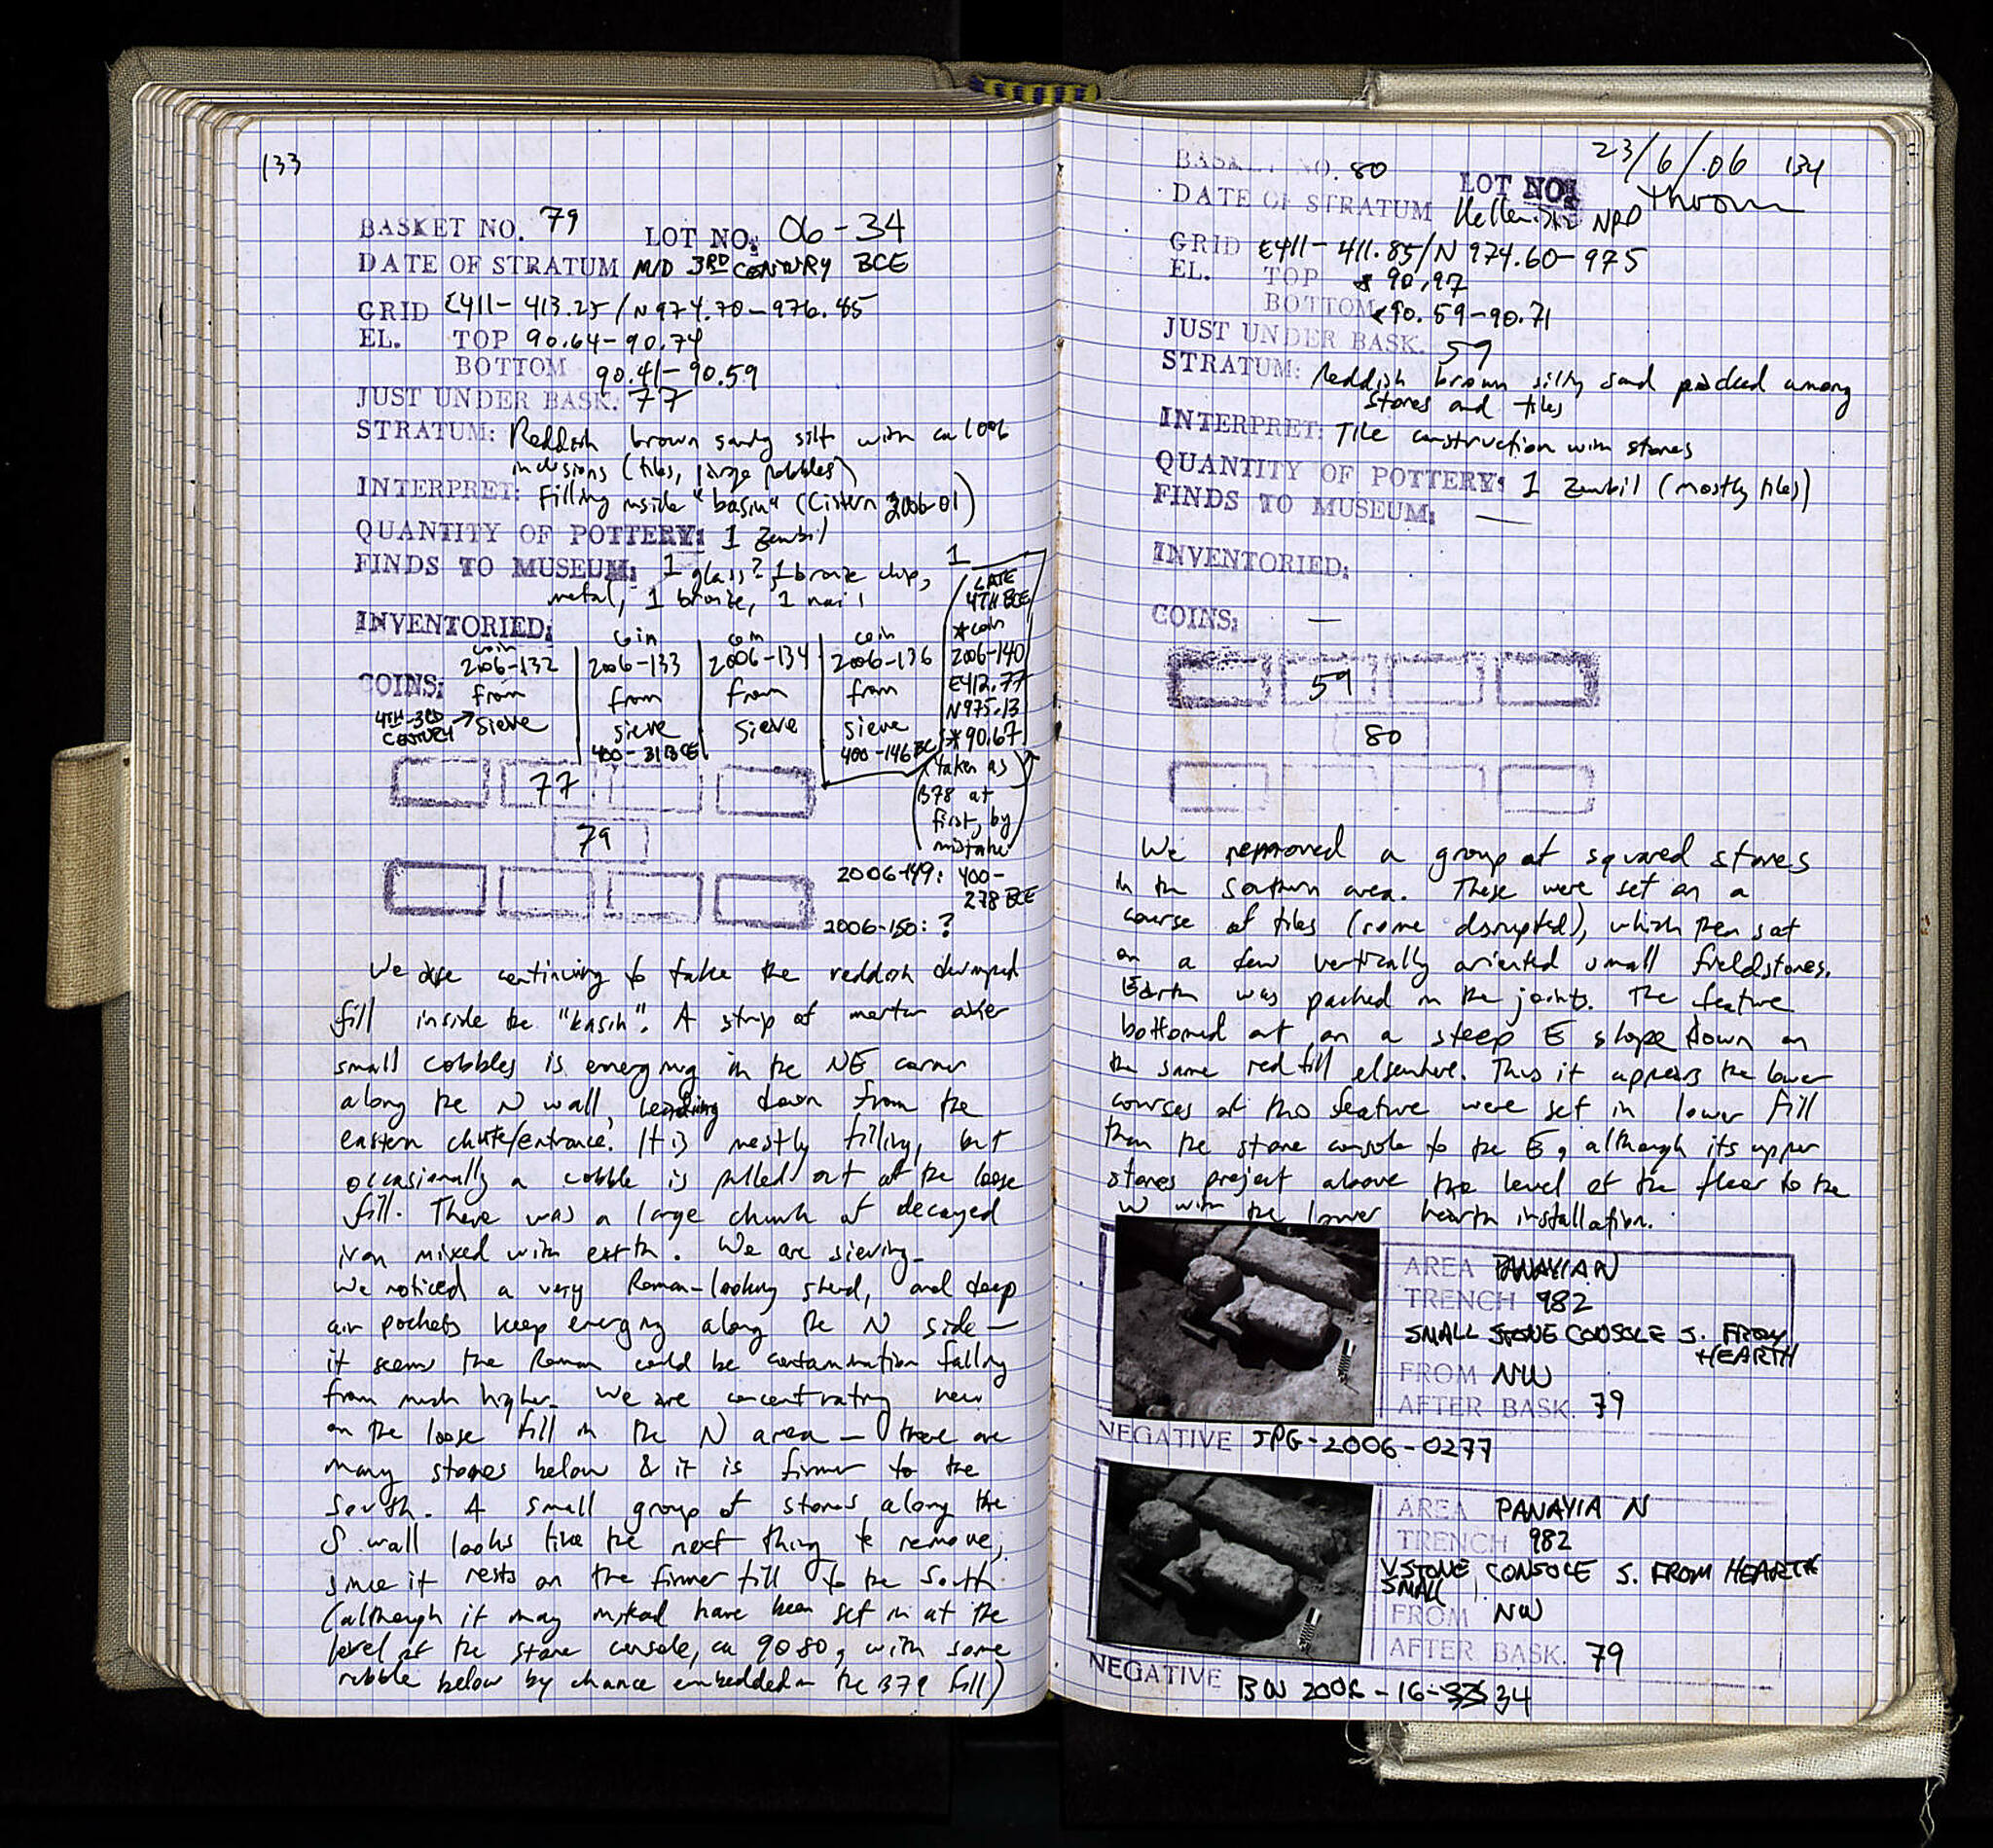 133
BASKET NO. 79 LOT NO: 06-34
DATE OF STRATUM MID 3RD CENTURY BCE
GRID E411-413.25/N974.70-976.45
EL. TOP 90.64-90.74
BOTTOM 90.41-90.59
JUST UNDER BASK. 77
STRATUM: Reddish brown sandy silt with ca 100%
inclusions (tiles, large pebbles)
INTERPRET: Filling inside "basin" (Cistern 2006-01)
QUANTITY OF POTTERY: 1 Zembil
FINDS TO MUSEUM: 1 glass? 1 bronze chip,
metal, 1 bronze, 1 nail
INVENTORIED:
COINS:
coin
2006-132
from
sieve
4TH-3RD
CENTURY →
coin
2006-133
from
sieve
400-31 BCE
coin
2006-134
from
sieve
coin
2006-136
from
sieve
400-146 BC
1
LATE
4TH BCE
*coin
2006-140
E412.77
N975.13
*90.67
(taken as
B78 at
first, by
mistake)
77
79
2006-149: 400-
278 BCE
2006-150: ?
We are continuing to take the reddish dumped
fill inside the "basin". A strip of mortar over
small cobbles is emerging in the NE corner
along the N wall, leading down from the
eastern chute/entrance. It is mostly filling, but
occasionally a cobble is pulled out of the loose
fill. There was a large chunk of decayed
iron mixed with earth. We are sieving.
We noticed a very Roman-looking sherd, and deep
air pockets keep emerging along the N side —
it seems the Roman could be contamination falling
from much higher. We are concentrating now
on the loose fill in the N area — there are
many stones below & it is firmer to the
South. A small group of stones along the
S wall looks like the next thing to remove,
since it rests on the firmer fill to the South
(although it may instead have been set in at the
level of the stone console, ca 90.80, with some
rubble below by chance embedded in the B79 fill)
23/6/.06 134
BASKET NO. 80 LOT NO:
DATE OF STRATUM Hellenistic NPD
GRID E411-411.85/N974.60-975
EL. TOP 90.97
BOTTOM <90.59-90.71
JUST UNDER BASK. 59
STRATUM: Reddish brown silty sand packed among
stones and tiles
INTERPRET: Tile construction with stones
QUANTITY OF POTTERY: 1 Zembil (mostly tiles)
FINDS TO MUSEUM: —
INVENTORIED:
COINS: —
59
80
We removed a group of squared stones
in the Southern area. These were set on a
course of tiles (some disrupted), which then sat
on a few vertically oriented small fieldstones.
Earth was packed in the joints. The feature
bottomed out on a steep E slope down on
the same red fill elsewhere. Thus it appears the lower
courses of this feature were set in lower fill
than the stone console to the E, although its upper
stones project above the level of the floor to the
W with the lower hearth installation.
AREA PANAYIA N
TRENCH 982
SMALL STONE CONSOLE S. FROM
HEARTH
FROM NW
AFTER BASK. 79
NEGATIVE JPG-2006-0277
AREA PANAYIA N
TRENCH 982
STONE CONSOLE S. FROM HEARTH
SMALL
FROM NW
AFTER BASK. 79
NEGATIVE BW 2006-16-34